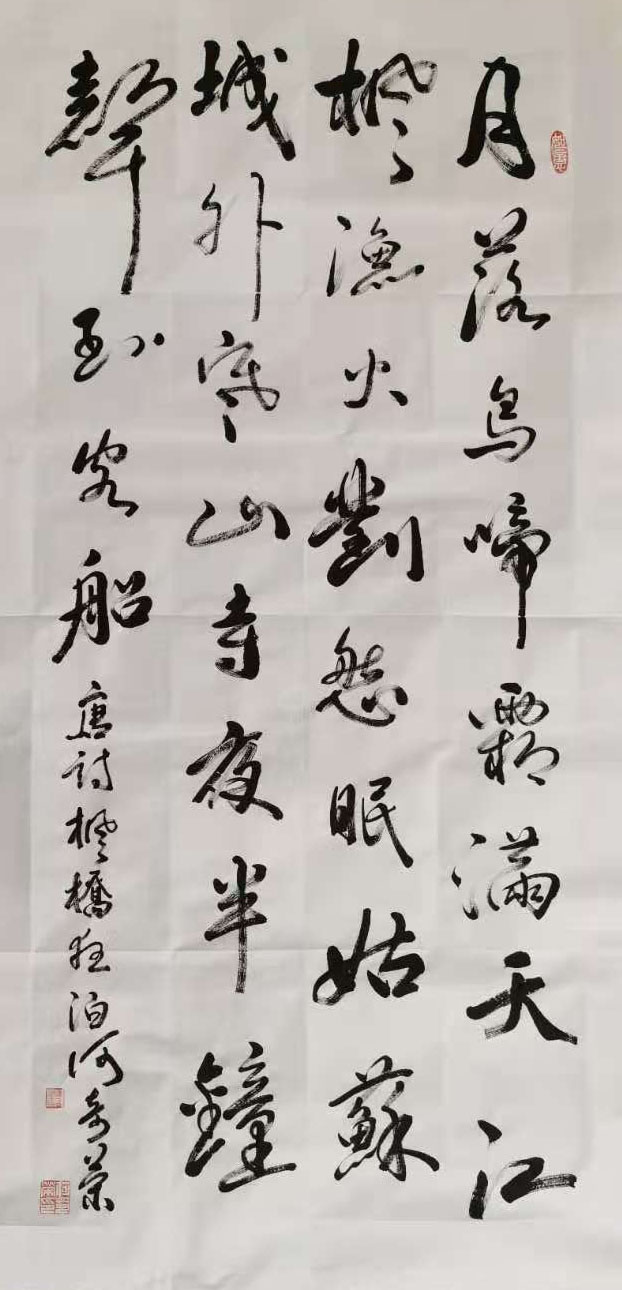 月落烏啼霜滿天江
楓漁火對愁眠姑蘇
城外寒山寺夜半鐘
聲到客船
唐詩楓橋夜泊何奇榮